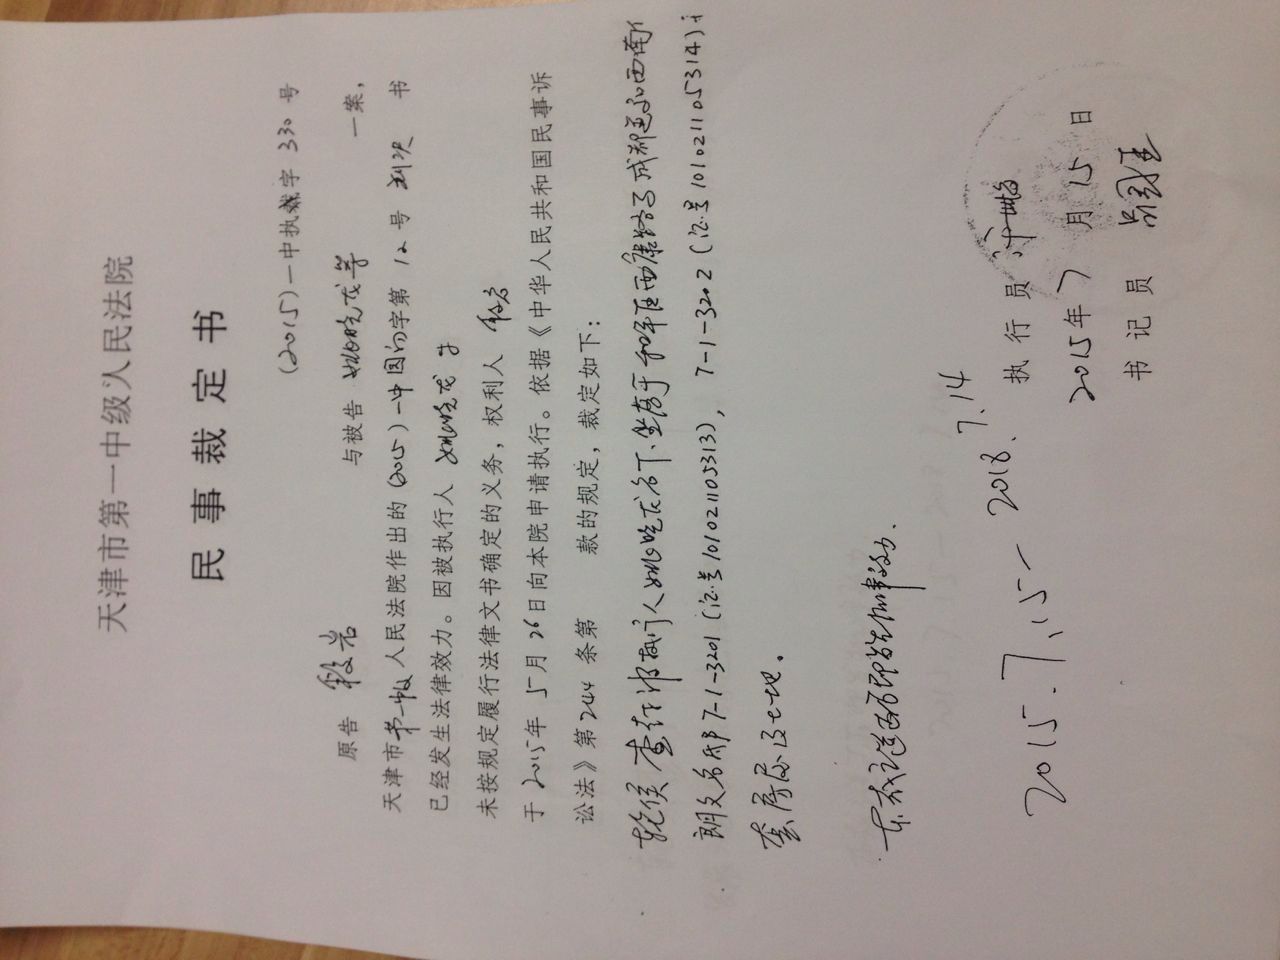 天津市第一中级人民法院
民事裁定书
(2015)一中执裁字 330 号
原告 段岩 与被告 姚晓龙等 一案，
天津市第一中级人民法院作出的 (2015)一中民初字第 12 号 判决 书
已经发生法律效力。因被执行人 姚晓龙等
未按规定履行法律文书确定的义务，权利人 段岩
于 2015年 5月 26日向本院申请执行。依据《中华人民共和国民事诉
讼法》第244 条第 款的规定，裁定如下：
轮侯查封被执行人姚晓龙名下坐落于和平区西康路与成都道西南
朗文名邸 7-1-3201（证号101021105313），7-1-3202（证号101021105314）
套房屋及土地。
本裁定送达后即发生法律效力.
2015.7.15－2018.7.14
执行员
2015年 7 月 15 日
书记员 吕国